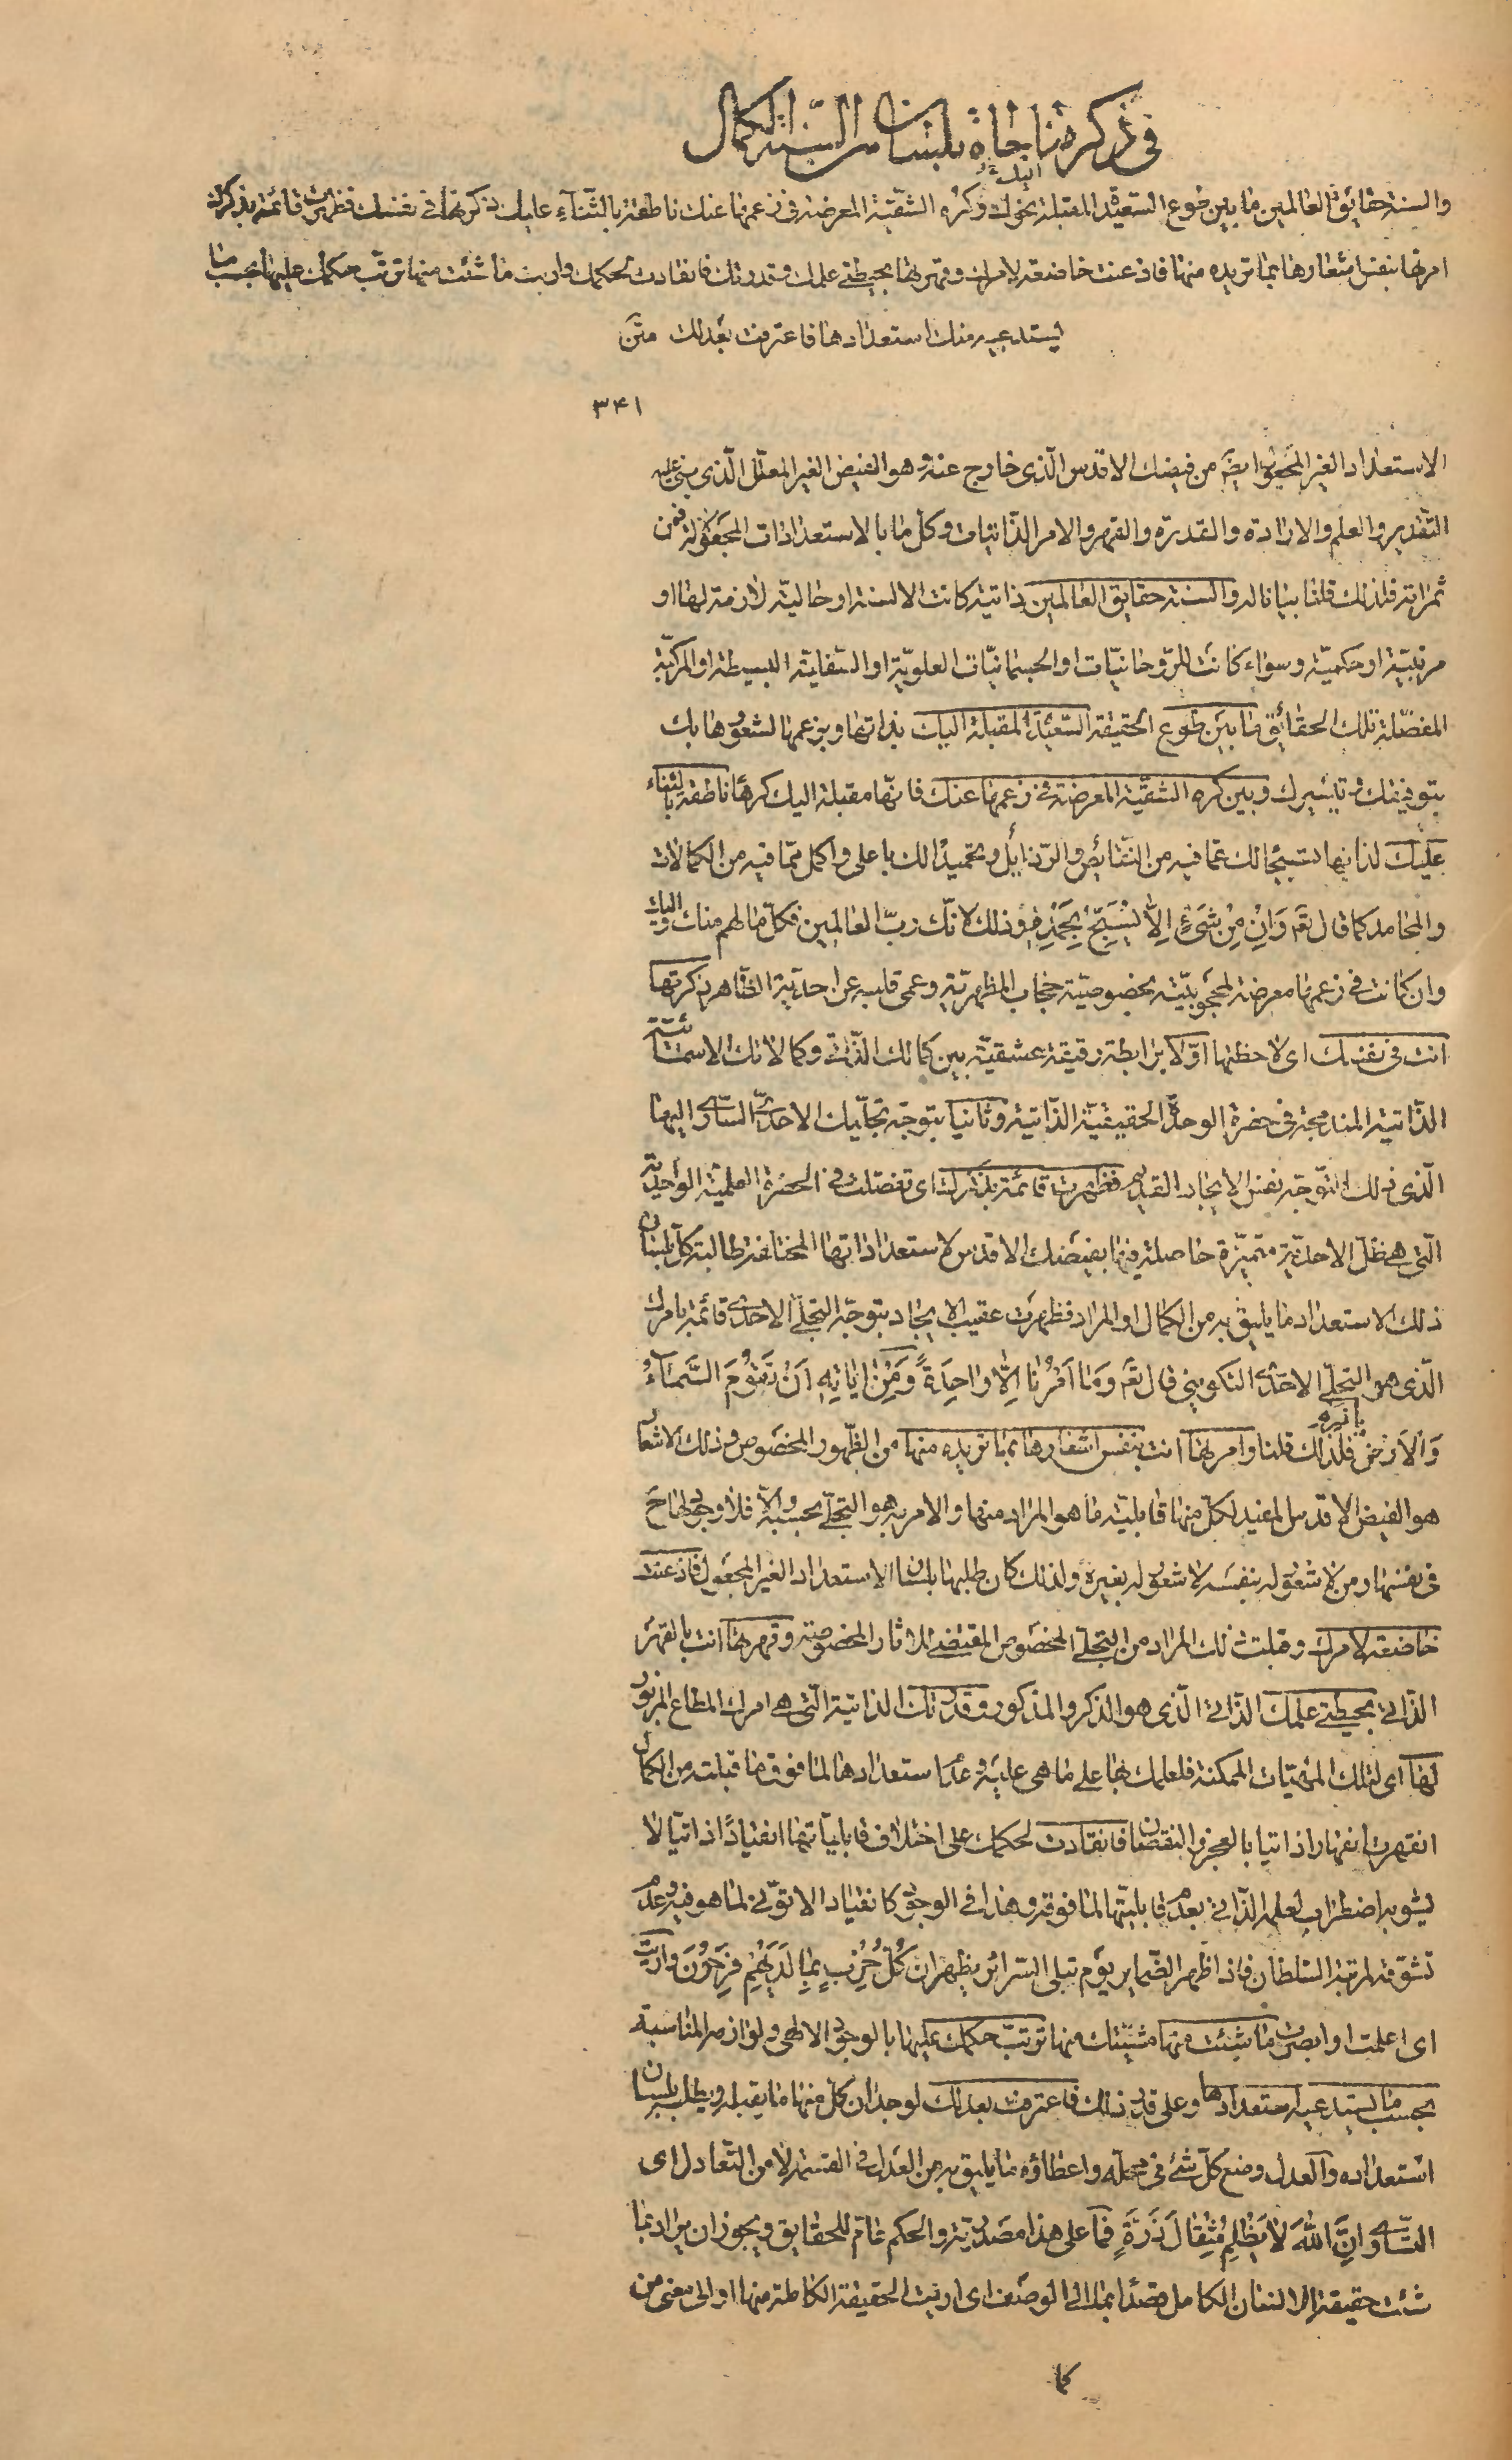 في ذكر مناجاة بلسان السنة الكمال
والسنة حقائق العالمين ما بين طوع السعيدة المقبلة نحوك وكره الشقية المعرضة في زعمها عنك ناطقة بالثناء عليك ذكرتها في نفسك فظهرت قائمة بذكرك
اليك
امرتها بنفس اشعارها بما تريده منها فاذعنت خاضعة لامرك وقهرتها بحيطتي علمك وقدرتك فانقادت لحكمك واريت ما شئت منها ترتب حكمك عليها بحسب ما
يستدعيه منك استعدادها فاعترفت بعدلك متن
٣٤١
الاستعداد الغير المجعول ايضا من فيضك الاقدس الذي خارج عنه وهو الفيض الغير المعلل الذي يبنى عليه
التقدير والعلم والارادة والقدرة والقهر والامر الذاتيات وكل ما بالاستعدادات المجعولة فمن
ثمراته فلذلك قلنا بيانا له والسنة حقايق العالمين ذاتية كانت الالسنة او حالية لازمة لها او
مرتبية او حكمية وسواء كانت للروحانيات او الجسمانيات العلوية او السفلية البسيطة او المركبة
المفصلة تلك الحقائق ما بين طوع الحقيقة السعيدة المقبلة اليك بذاتها وبزعمها لشعورها بك
بتوفيقك وتيسيرك وبين كره الشقية المعرضة في زعمها عنك فانها مقبلة اليك كرها ناطقة بالثناء
عليك لذاتها تسبيحا لك عما فيه من النقائص والرذايل وتحميدا لك باعلى واكمل مما فيه من الكمالات
والمحامد كما قال تع وَاِنْ مِنْ شَيْءٍ اِلَّا يُسَبِّحُ بِحَمْدِهِ وذلك لانك رب العالمين فكل ما لهم منك واليك
وان كانت في زعمها معرضة لمحجوبيته بخصوصية حجاب المظهرية وعمى قلبه عن احدية الظاهر ذكرتها
انت في نفسك اي لاحظتها اولا برابطة رقيقة عشقية بين كمالك الذاتي وكمالاتك الاسمائية
الذاتية المندمجة في حضرة الوحدة الحقيقية الذاتية وثانيا بتوجه تجليك الاحدي الساري اليها
الذي ذلك التوجه نفس الايجاد القديم فظهرت قائمة بذكرك اي تفصلت في الحضرة العلمية الواحدية
التي هي ظل الاحدية متميزة حاصلة فيها بفيضك الاقدس لاستعداداتها المختلفة طالبة كل بلسان
ذلك الاستعداد ما يليق به من الكمال او المراد فظهرت عقيب الايجاد بتوجه التجلي الاحدي قائمة بامرك
الذي هو التجلي الاحدي التكويني قال تع وَمَا اَمْرُنَا اِلَّا وَاحِدَةً وَمِنْ اٰيَاتِهِ اَنْ تَقُومَ السَّمَاءُ
وَالْاَرْضُ بامره فلذلك قلنا وامرتها انت بنفس اشعارها بما تريده منها من الظهور المخصوص وذلك الاشعار
هو الفيض الاقدس المفيد لكل منها قابلية ما هو المراد منها والامر به هو التجلي بحسبه والا فلا وجود لها ح
في نفسها ومن لا شعور له بنفسه لا شعور له بغيره ولذلك كان طلبها بلسان الاستعداد الغير المجعول فاذعنت
خاضعة لامرك وقبلت ذلك المراد من التجلي المخصوص المقتضي للاثار المخصوصة وقهرتها انت بالقهر
الذاتي بحيطتي علمك الذاتي الذي هو الذكر والمذكور وقدرتك الذاتية التي هي امرك المطاع المزبور
لها اي لتلك المهيات الممكنة فلعلمك بها على ما هي عليه وعدم استعدادها لما فوق ما قبلته من الكمال
انقهرت انقهارا ذاتيا بالعجز والنقصان فانقادت لحكمك على اختلاف قابلياتها انقيادا ذاتيا لا
يشوبه اضطراب لعلمه الذاتي بعدم قابليتها لما فوقه وهذا في الوجود كانقياد الاتوني لما هو فيه وعدم
تشوقه لمرتبة السلطان فاذا ظهر الضماير يوم تبلى السرائر يظهر ان كُلُّ حِزْبٍ بِمَا لَدَيْهِمْ فَرِحُونَ واريت
اي اعلمت او ابصرت ما شئت منها مشيتك منها ترتب حكمك عليها بالوجود الالهي ولوازمه المناسبة
بحسب ما يستدعيه استعدادها وعلى قدر ذلك فاعترفت بعدلك لوجدان كل منها ما يقبله ويطلبه بلسان
استعداده والعدل وضع كل شئ في محله واعطاؤه ما يليق به من العدل في القسمة لا من التعادل اي
التساوي انَّ اللهَ لَا يَظْلِمُ مِثْقَالَ ذَرَّةٍ فما على هذا مصدرية والحكم عام للحقايق ويجوز ان يراد بما
شئت حقيقة الانسان الكامل قصدا بما الى الوصف اي اريت الحقيقة الكاملة منها او الى معنى من
كما